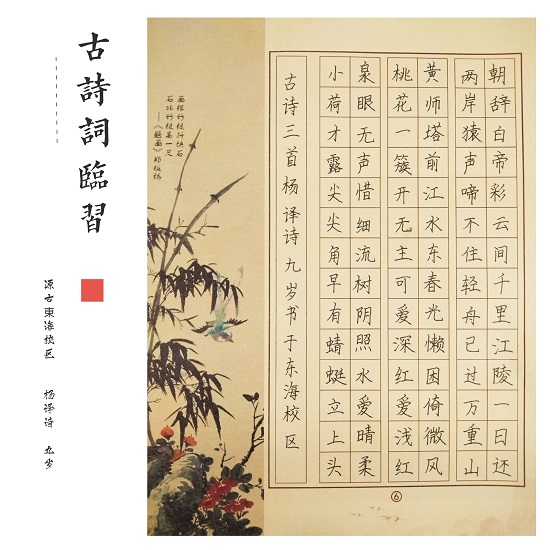 古詩詞臨習
源古東海校区 杨译诗 九岁
朝辞白帝彩云间千里江陵一日还
两岸猿声啼不住轻舟已过万重山
黄师塔前江水东春光懒困倚微风
桃花一簇开无主可爱深红爱浅红
泉眼无声惜细流树阴照水爱晴柔
小荷才露尖尖角早有蜻蜓立上头
古诗三首杨译诗九岁书于东海校区
画根竹枝扦块石
石比竹枝高一尺
——《题画》郑板桥
⑥